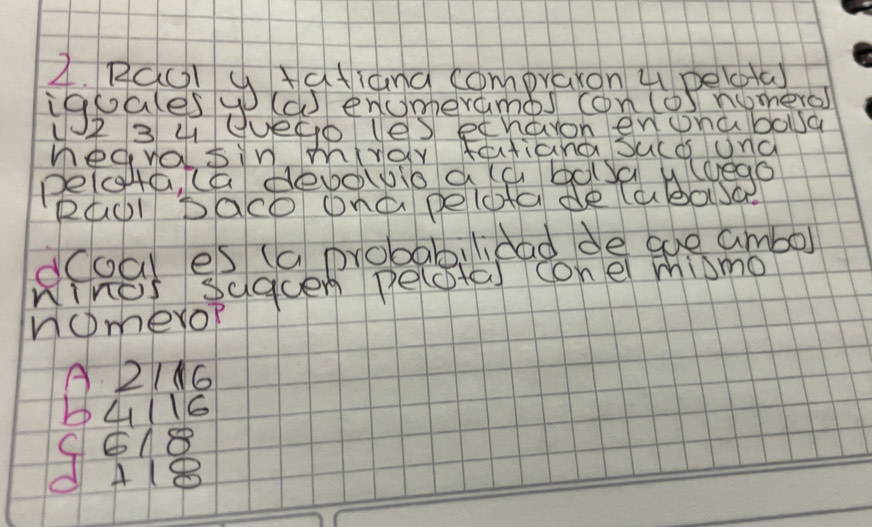 2. Raul y tatiana compraron 4 pelotas
iguales y las enumeramos con los numeros
1 2 3 4 luego les echaron en una bolsa
negra sin mirar tatiana saco una
pelota, la devolvio a la bolsa y luego
Raul saco una pelota de la bolsa.
¿Cual es la probabilidad de que ambos
niños saquen pelotas con el mismo
numero?
A 2/16
b 4/16
c 6/8
d 1/8